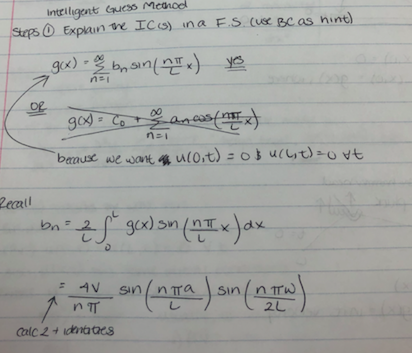 Intelligent Guess Method
Steps ① Explain the IC(s) in a F.S (use BC as hint)
g(x) = ∞∑n=1 bn sin(nπ/L x) yes
OR
g(x) = C0 + ∞∑n=1 an cos(nπ/L x)
because we want u(0,t) = 0 & u(L,t) = 0 ∀t
Recall
bn = 2/L ∫0^L g(x) sin(nπ/L x) dx
= 4V/nπ sin(nπa/L) sin(nπw/2L)
calc 2 + identities